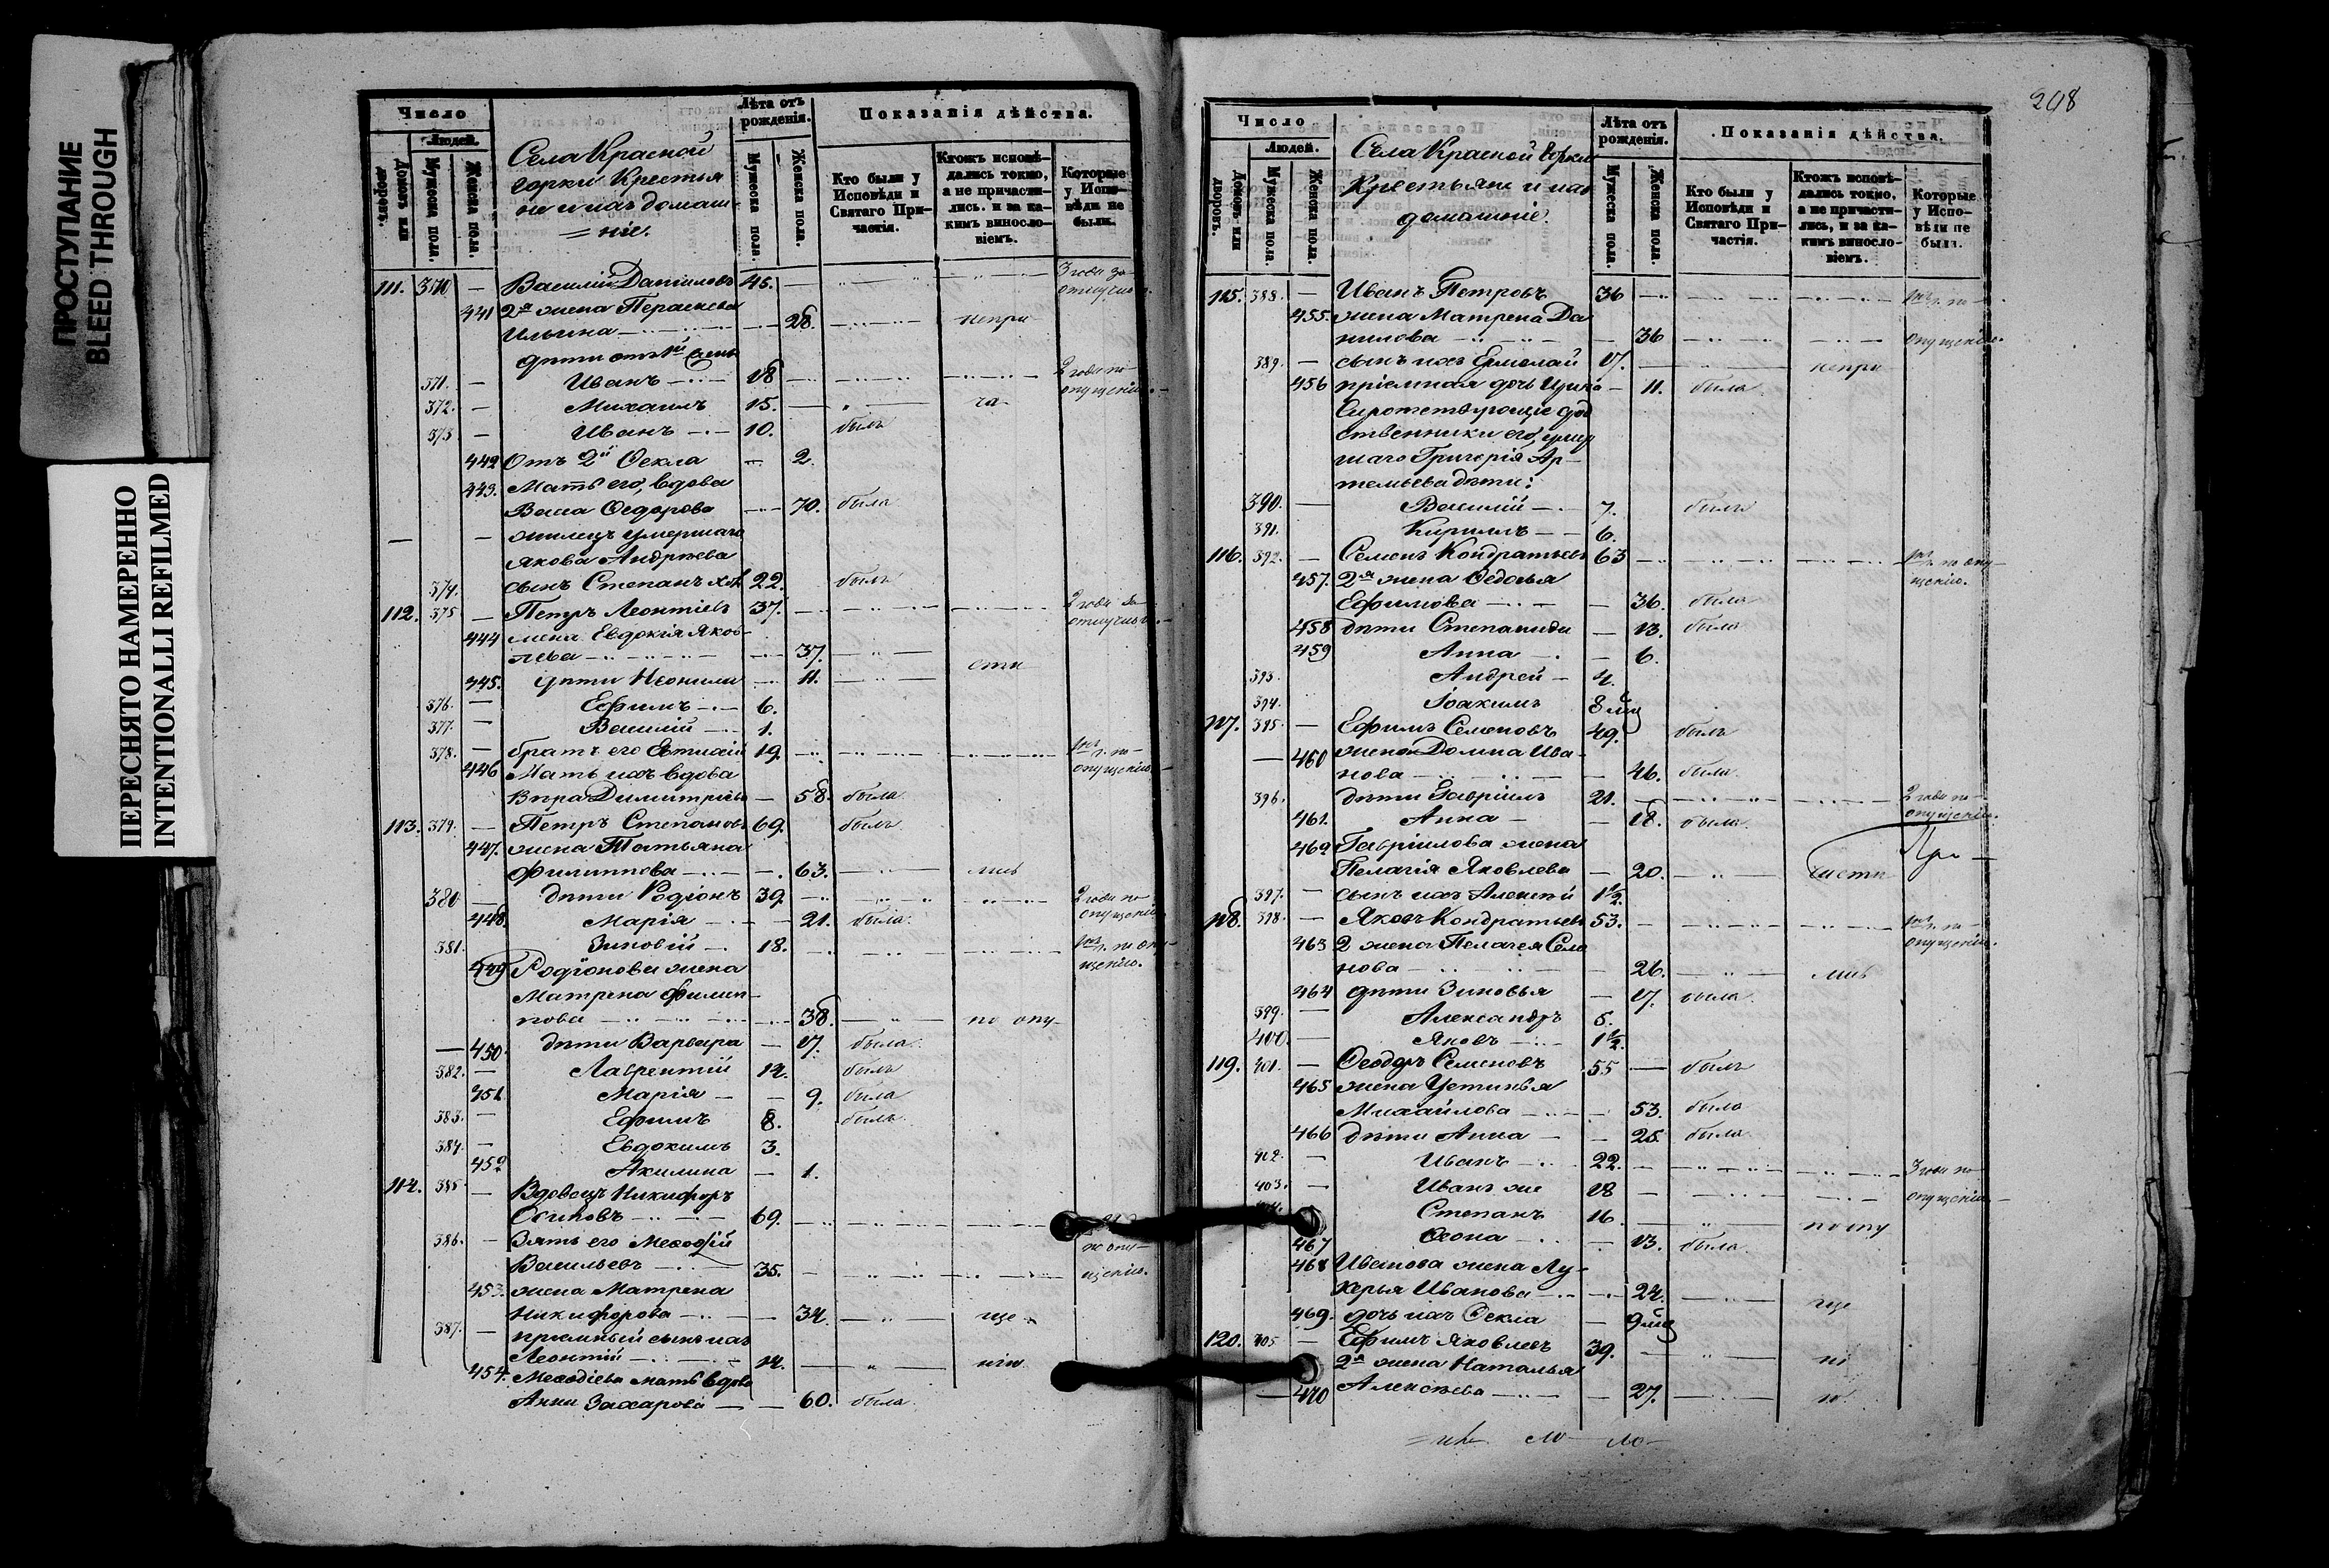 ПРОСТУПАНИЕ
BLEED THROUGH
ПЕРЕСНЯТО НАМЕРЕННО
INTENTIONALLI REFILMED
Число
Людей.
Домовъ или дворовъ.
Мужеска пола.
Женска пола.
Села Красной
горки Крестья
не и ихъ домаш-
=ніе.
Лѣта отъ рожденія.
Мужеска пола.
Женска пола.
Показанія дѣйства.
Кто были у Исповѣди и Святаго Причастія.
Ктожъ исповѣдались токмо, а не причастились. и за какимъ винословіемъ.
Которые у Исповѣди не были.
111. — Василій Даніиловъ 45. 3 года за
отлучкою.
441 2я жена Параскева
Ильина 28. непри
дѣти отъ 1й жены
371. — Иванъ 18 2 года по
опущенію.
372. — Михаилъ 15. ча-
373 — Иванъ 10. былъ
442 Отъ 2й Ѳекла — 2.
443. Мать его, вдова
Васса Ѳедорова 70. была
— — жилецъ умершаго
Якова Андреева
374. сынъ Степанъ хол 22. былъ
112. 375 — Петръ Леонтіевъ 37. 2 года за
отлучкою.
444 жена Евдокія Яков-
лева 37. сти
445. дѣти Неонила 11.
376. — Ефимъ 6.
377. — Василій 1.
378. — братъ его Евтихій 19. по-
опущенію.
446 Мать ихъ вдова
Вѣра Димитріева — 58. была
113. 379. — Петръ Степановъ 69. былъ
447. жена Татьяна
Филиппова — 63. лись
380 — дѣти Родіонъ 39. 2 года по
448. Марія — 21. была. опущенію
381. Зиновій 18. по опу-
449 Родіонова жена щенію.
Матрена Филип-
пова 38. по опу-
— 450. дѣти Варвара — 17. была.
382. — Лаврентій 14. былъ
451 Марія — 9. была
383. — Ефимъ 8. былъ
384. — Евдокимъ 3.
452 Акилина — 1.
114. 385 — Вдовецъ Никифоръ
Осиповъ 69.
386. — Зять его Меѳодій по опу-
Васильевъ 35. щенію.
453. жена Матрена
Никифорова — 34. ще
387. — пріемный сынъ ихъ
Леонтій 14. нію
454. Меѳодіева мать вдова
Анна Захарова — 60. была.
208
Число
Людей.
Домовъ или дворовъ.
Мужеска пола.
Женска пола.
Села Красной горки
Крестьяне и ихъ
домашніе.
Лѣта отъ рожденія.
Мужеска пола.
Женска пола.
Показанія дѣйства.
Кто были у Исповѣди и Святаго Причастія.
Ктожъ исповѣдались токмо, а не причастились, и за какимъ винословіемъ.
Которые у Исповѣди не были.
115. 388. — Иванъ Петровъ 36 по-
455. жена Матрена Да
нилова 36 опущенію.
389. — сынъ ихъ Ермолай 17. непри
456 пріемная дочь Ирина — 11. была
Сиротствующіе род
ственники его, умер
шаго Григорія Ар-
темьева дѣти:
390. — Василій 7. былъ
391. Кириллъ 6.
116. 392. — Семенъ Кондратьевъ 63 по опу-
457. 2я жена Ѳедосья щенію.
Ефимова — 36. была
458 дѣти Степанида — 13. была
459 Анна — 6.
393. Андрей 4.
394. Іоакимъ 8 мц
117. 395. — Ефимъ Семеновъ 49. былъ
— 460 жена Домна Ива-
нова — 46. была.
396. дѣти Гавріилъ 21. 2 года по
461. Анна — 18. была. опущенію.
462 Гавріилова жена
Пелагія Яковлева — 20. части При-
397. — сынъ ихъ Алексѣй 1½.
118. 398. — Яковъ Кондратьевъ 53. по-
463 2 жена Пелагея Семе опущенію.
нова — 26. лись
464 дѣти Зиновья — 17. была.
399. — Александръ 5.
400. — Яковъ 1½.
119. 401. — Ѳеодоръ Семеновъ 55 былъ
465 жена Устинья
Михайлова — 53. была
466 дѣти Анна — 25. была
402. — Иванъ 22. 3 года по
403. — Иванъ же 18 опущенію
Степанъ 16. по опу
467 Ѳеона — 13. была.
468 Иванова жена Лу-
керья Иванова 24. ще
469. дочь ихъ Ѳекла — 9 мц
120. 405 — Ефимъ Яковлевъ 39. ні
2я жена Наталья
— 470 Алексѣева — 27. ю.